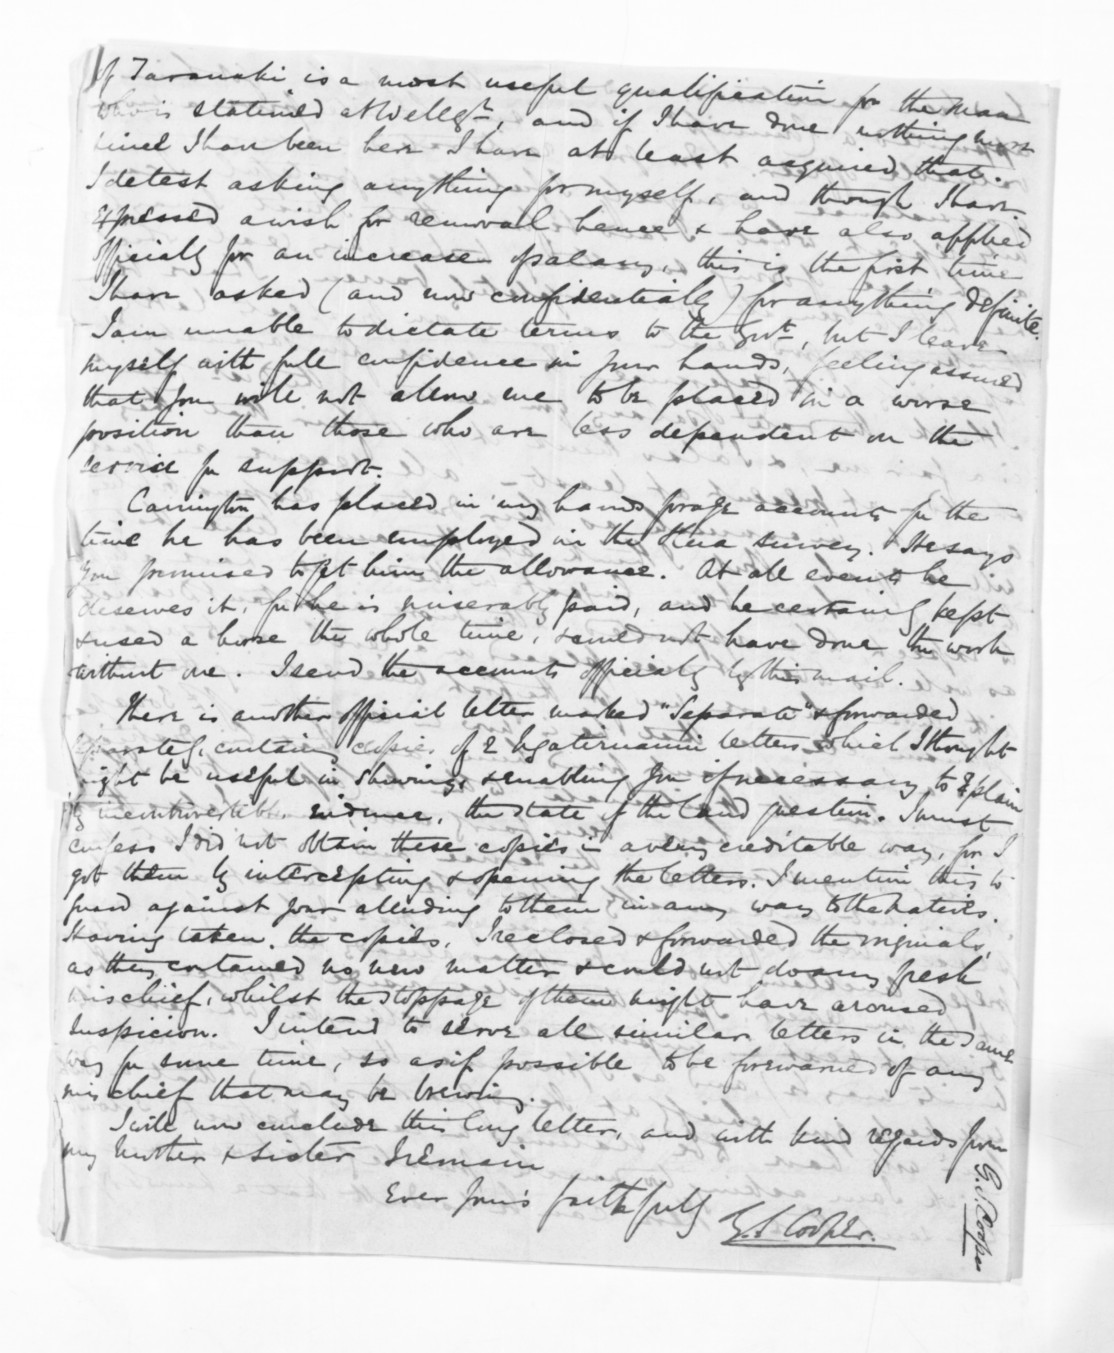 of Taranaki is a most useful qualification for the man
who is stationed at Wellgtn, and if I have done nothing more
since I have been here I have at least acquired that.
I detest asking anything for myself, and though I have
expressed a wish for removal hence & have also applied
officially for an increase of salary, this is the first time
I have asked (and now confidentially) for anything definite.
I am unable to dictate terms to the Govt, but I leave
myself with full confidence in your hands, feeling assured
that you will not allow me to be placed in a worse
position than those who are less dependent on the
service for support.
Carrington has placed in my hands forage accounts for the
time he has been employed in the Hua survey. He says
you promised to get him the allowance. At all events he
deserves it, for he is miserably paid, and he certainly kept
& used a horse the whole time, & could not have done the work
without one. I send the accounts officially by this mail.
There is another official letter marked "Separate" & forwarded
separately, containing copies of 2 Ngatiruanui letters which I thought
might be useful in shewing, & enabling you if necessary to explain
by incontrovertible evidence, the state of the land question. I must
confess I did not obtain these copies in a very creditable way, for I
got them by intercepting & opening the letters. I mention this to
guard against your alluding to them in any way to the natives.
Having taken the copies, I reclosed & forwarded the originals,
as they contained no new matter & could not do any fresh
mischief, whilst the stoppage of them might have aroused
suspicion. I intend to serve all similar letters in the same
way for some time, so as if possible to be forewarned of any
mischief that may be brewing.
I will now conclude this long letter, and with kind regards from
my Mother & sister I remain
Ever Yours faithfully
G. S. Cooper.
G. S. Cooper